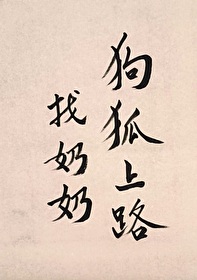 狗狐上路
找奶奶